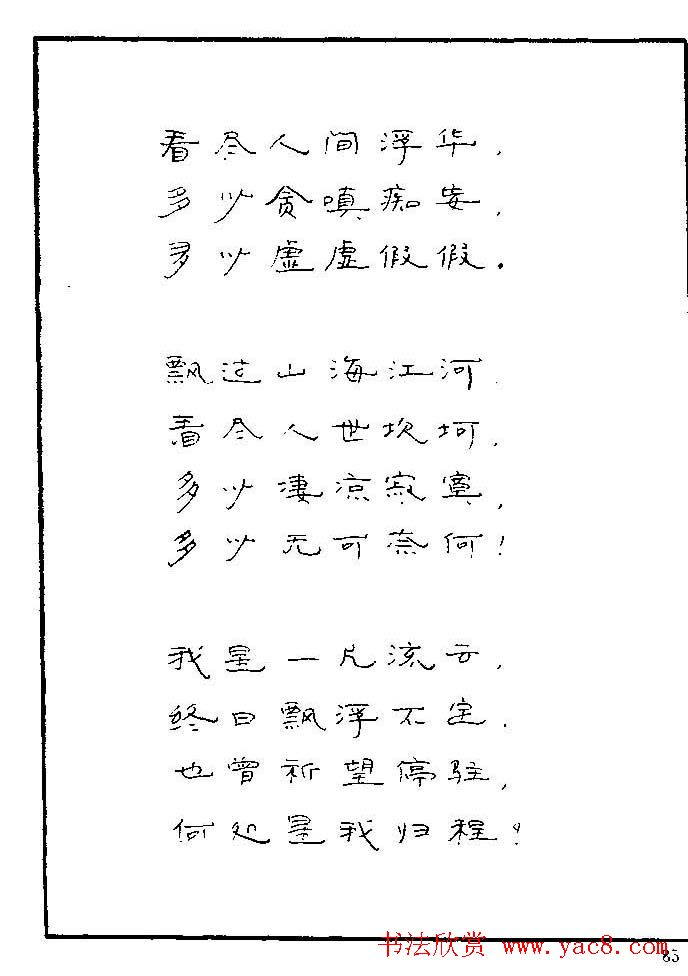 看尽人间浮华，
多少贪嗔痴妄，
多少虚虚假假。
飘过山海江河，
看尽人世坎坷，
多少凄凉寂寞，
多少无可奈何！
我是一片流云，
终日飘浮不定，
也曾祈望停驻，
何处是我归程？
书法欣赏 www.yac8.com
85